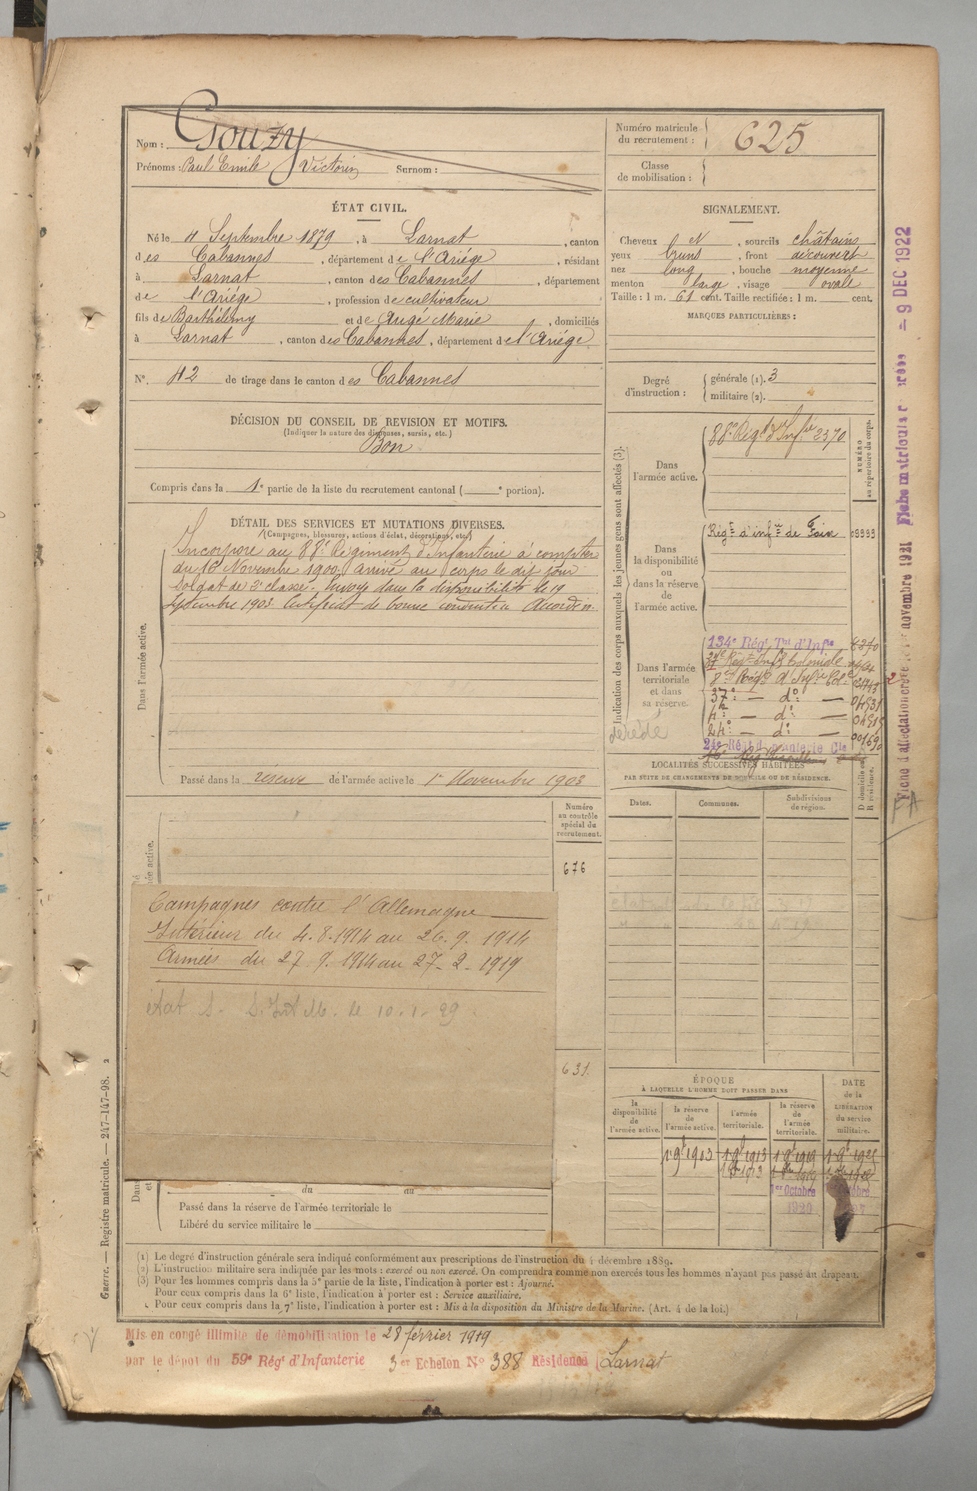 Nom : Gouzy
Prénoms : Paul Emile Victorin Surnom :
Numéro matricule du recrutement : 625
Classe de mobilisation :
ÉTAT CIVIL.
Né le 4 Septembre 1879, à Larnat, canton
des Cabannes, département de l'Ariége, résidant
à Larnat, canton des Cabannes, département
de l'Ariége, profession de cultivateur
fils de Barthélemy et de Augé Marie, domiciliés
à Larnat, canton des Cabannes, département de l'Ariége
N° 42 de tirage dans le canton des Cabannes
DÉCISION DU CONSEIL DE REVISION ET MOTIFS.
(Indiquer la nature des dispenses, sursis, etc.)
Bon
Compris dans la 1e partie de la liste du recrutement cantonal ( e portion).
DÉTAIL DES SERVICES ET MUTATIONS DIVERSES.
(Campagnes, blessures, actions d'éclat, décorations, etc.)
Incorporé au 88e Régiment d'Infanterie à compter
du 16 Novembre 1900, arrivé au corps le dit jour
Soldat de 2e classe. Envoyé dans la disponibilité le 19
Septembre 1903 Certificat de bonne conduite Accordé
Dans l'armée active.
Passé dans la réserve de l'armée active le 1er Novembre 1903
Numéro au contrôle spécial du recrutement.
676
Campagnes contre l'Allemagne
Intérieur du 4.8.1914 au 26.9.1914
Armées du 27.9.1914 au 27-2-1919
631
du au
Passé dans la réserve de l'armée territoriale le
Libéré du service militaire le
SIGNALEMENT.
Cheveux et, sourcils châtains
yeux bruns, front découvert
nez long, bouche moyenne
menton large, visage ovale
Taille : 1 m. 61 cent. Taille rectifiée : 1 m. cent.
MARQUES PARTICULIÈRES :
Degré d'instruction : générale (1). 3
militaire (2).
Indication des corps auxquels les jeunes gens sont affectés (3).
NUMÉRO au répertoire du corps.
Dans l'armée active.
88e Régt d'Infie 2370
Dans la disponibilité ou dans la réserve de l'armée active.
Régt d'infie de Foix 09999
Dans l'armée territoriale et dans sa réserve.
134e Régt Tal d'Infie
37e — do —
4e — do —
24e — do —
LOCALITÉS SUCCESSIVES HABITÉES
PAR SUITE DE CHANGEMENTS DE DOMICILE OU DE RÉSIDENCE.
Dates. Communes. Subdivisions de région. D domicile R résidence.
ÉPOQUE
À LAQUELLE L'HOMME DOIT PASSER DANS
DATE de la LIBÉRATION du service militaire.
la disponibilité de l'armée active. la réserve de l'armée active. l'armée territoriale. la réserve de l'armée territoriale.
1 9bre 1903 1 9bre 1913 1 9bre 1919 1 9bre 1925
1er Octobre
(1) Le degré d'instruction générale sera indiqué conformément aux prescriptions de l'instruction du 4 décembre 1889.
(2) L'instruction militaire sera indiquée par les mots : exercé ou non exercé. On comprendra comme non exercés tous les hommes n'ayant pas passé au drapeau.
(3) Pour les hommes compris dans la 5e partie de la liste, l'indication à porter est : Ajourné.
Pour ceux compris dans la 6e liste, l'indication à porter est : Service auxiliaire.
Pour ceux compris dans la 7e liste, l'indication à porter est : Mis à la disposition du Ministre de la Marine. (Art. 4 de la loi.)
Mis en congé illimité de démobilisation le 28 février 1919
par le dépôt du 59e Régt d'Infanterie 3er Echelon N° 388 Résidence Larnat
Guerre. — Registre matricule. — 247-147-98.
9 DEC 1922